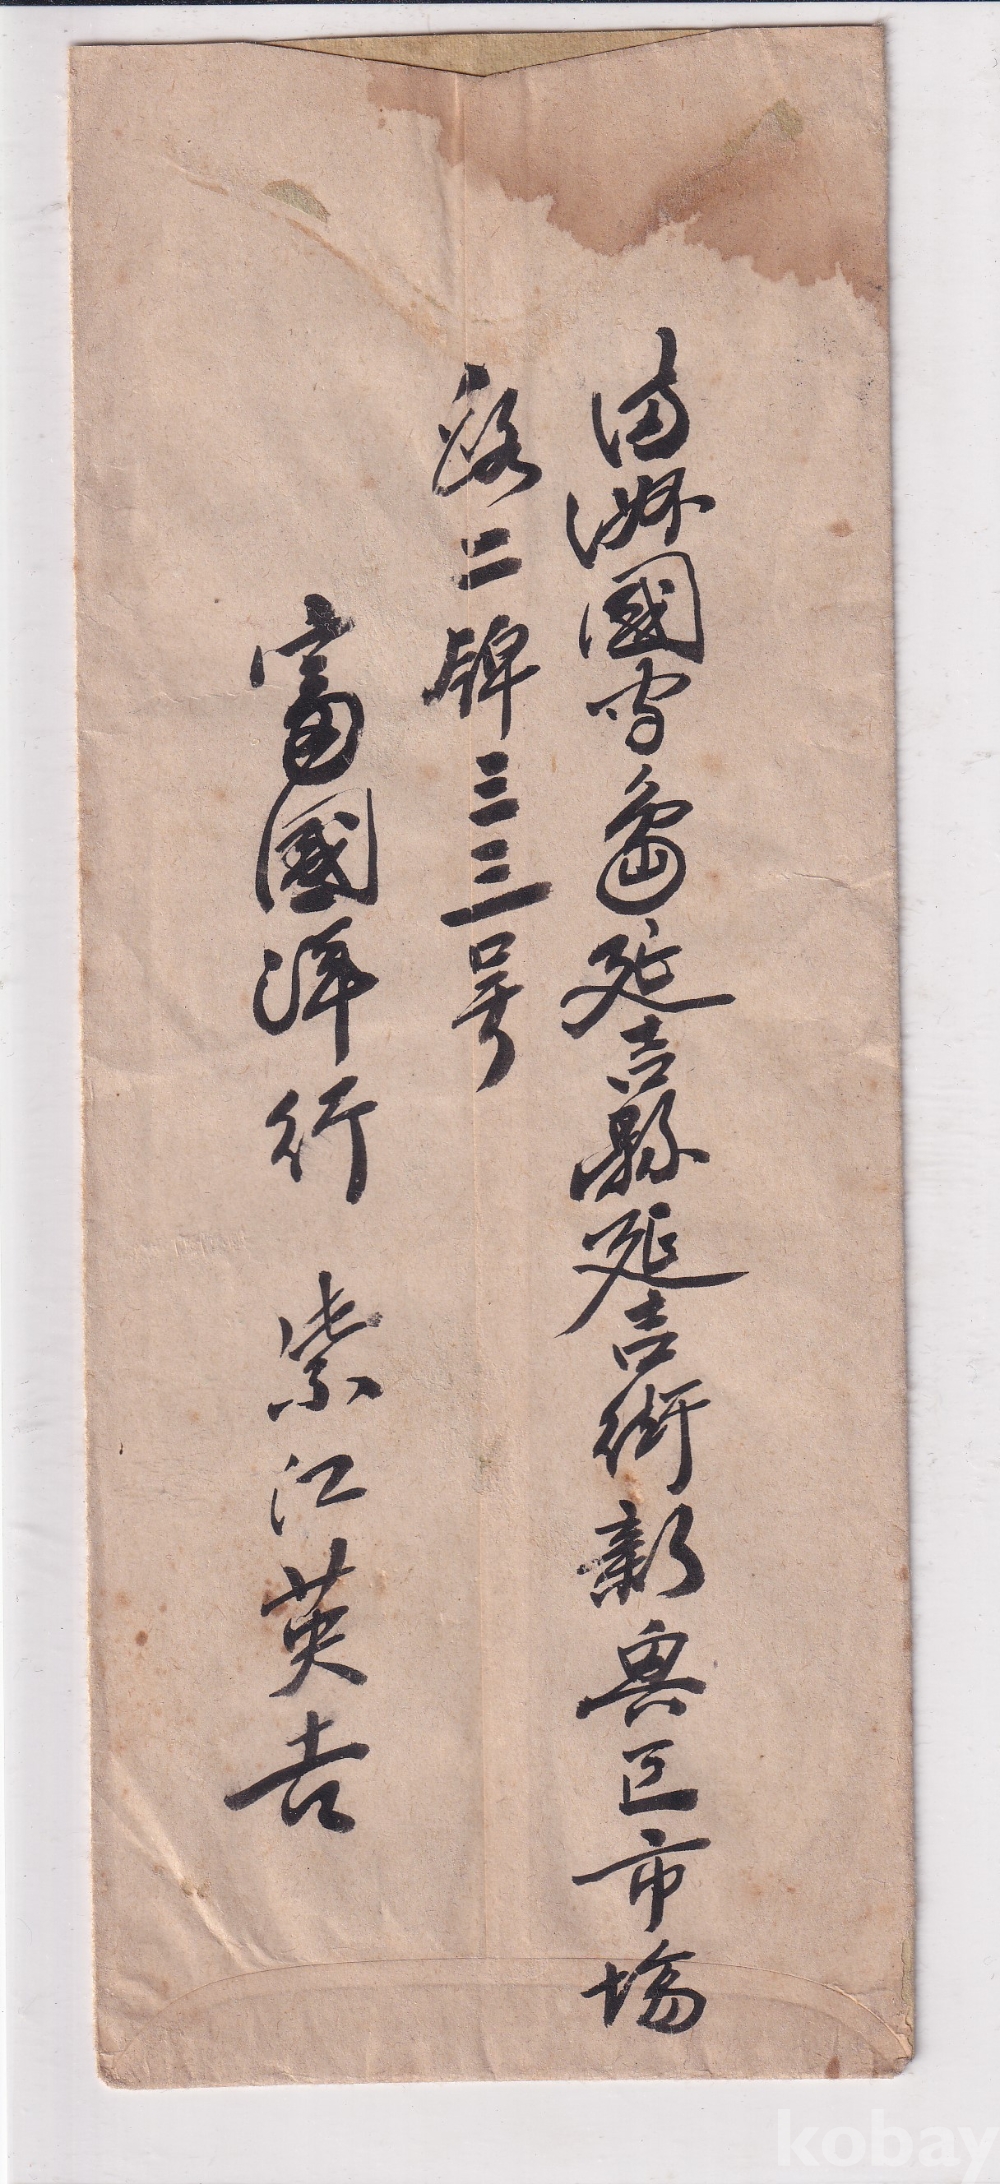 満洲國間島延吉縣延吉街新興区市場
路二牌三三号
富國洋行 紫江英吉
kobay